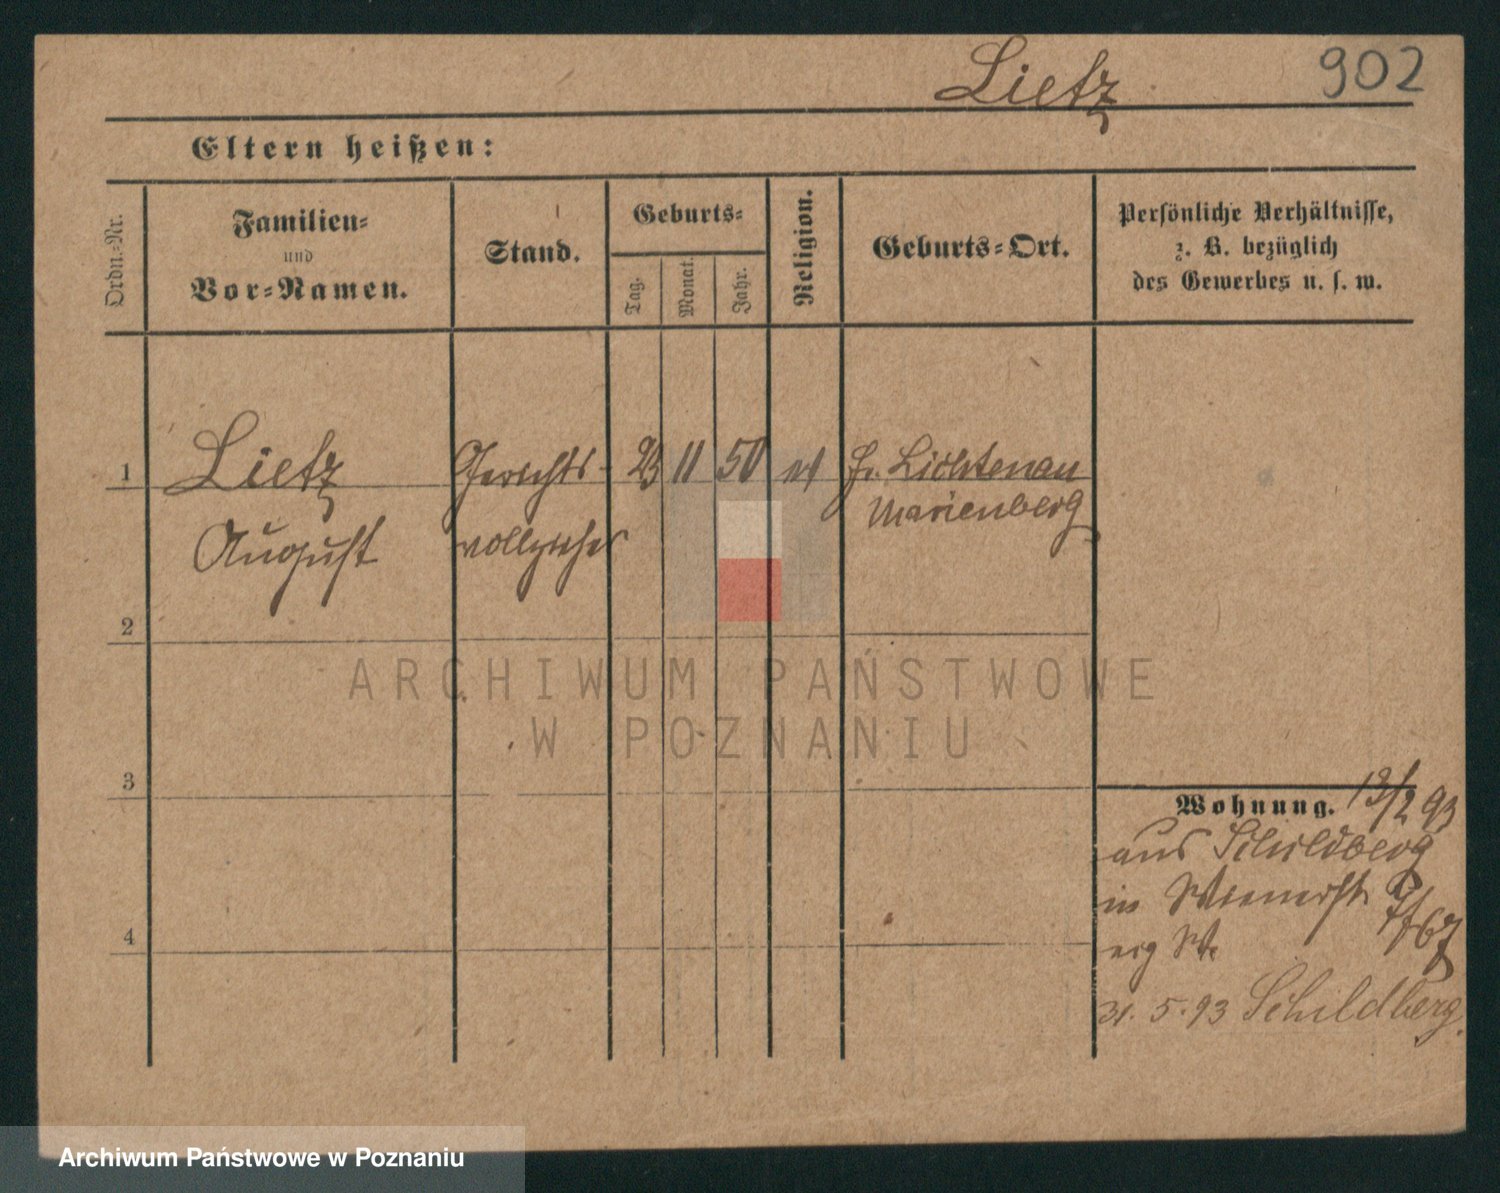 Lietz
902
Eltern heißen:
Ordn.-Nr.
Familien-
und
Vor-Namen.
Stand.
Geburts-
Tag.
Monat.
Jahr.
Religion.
Geburts-Ort.
Persönliche Verhältnisse,
z. B. bezüglich
des Gewerbes u. s. w.
1
Lietz
Gerichts-
23
11
50
Lichtenau
Marienberg
August
vollzieher
2
ARCHIWUM PAŃSTWOWE
W POZNANIU
3
Wohnung. 13/2 93
aus Schildberg
in
4
31. 5. 93 Schildberg.
Archiwum Państwowe w Poznaniu